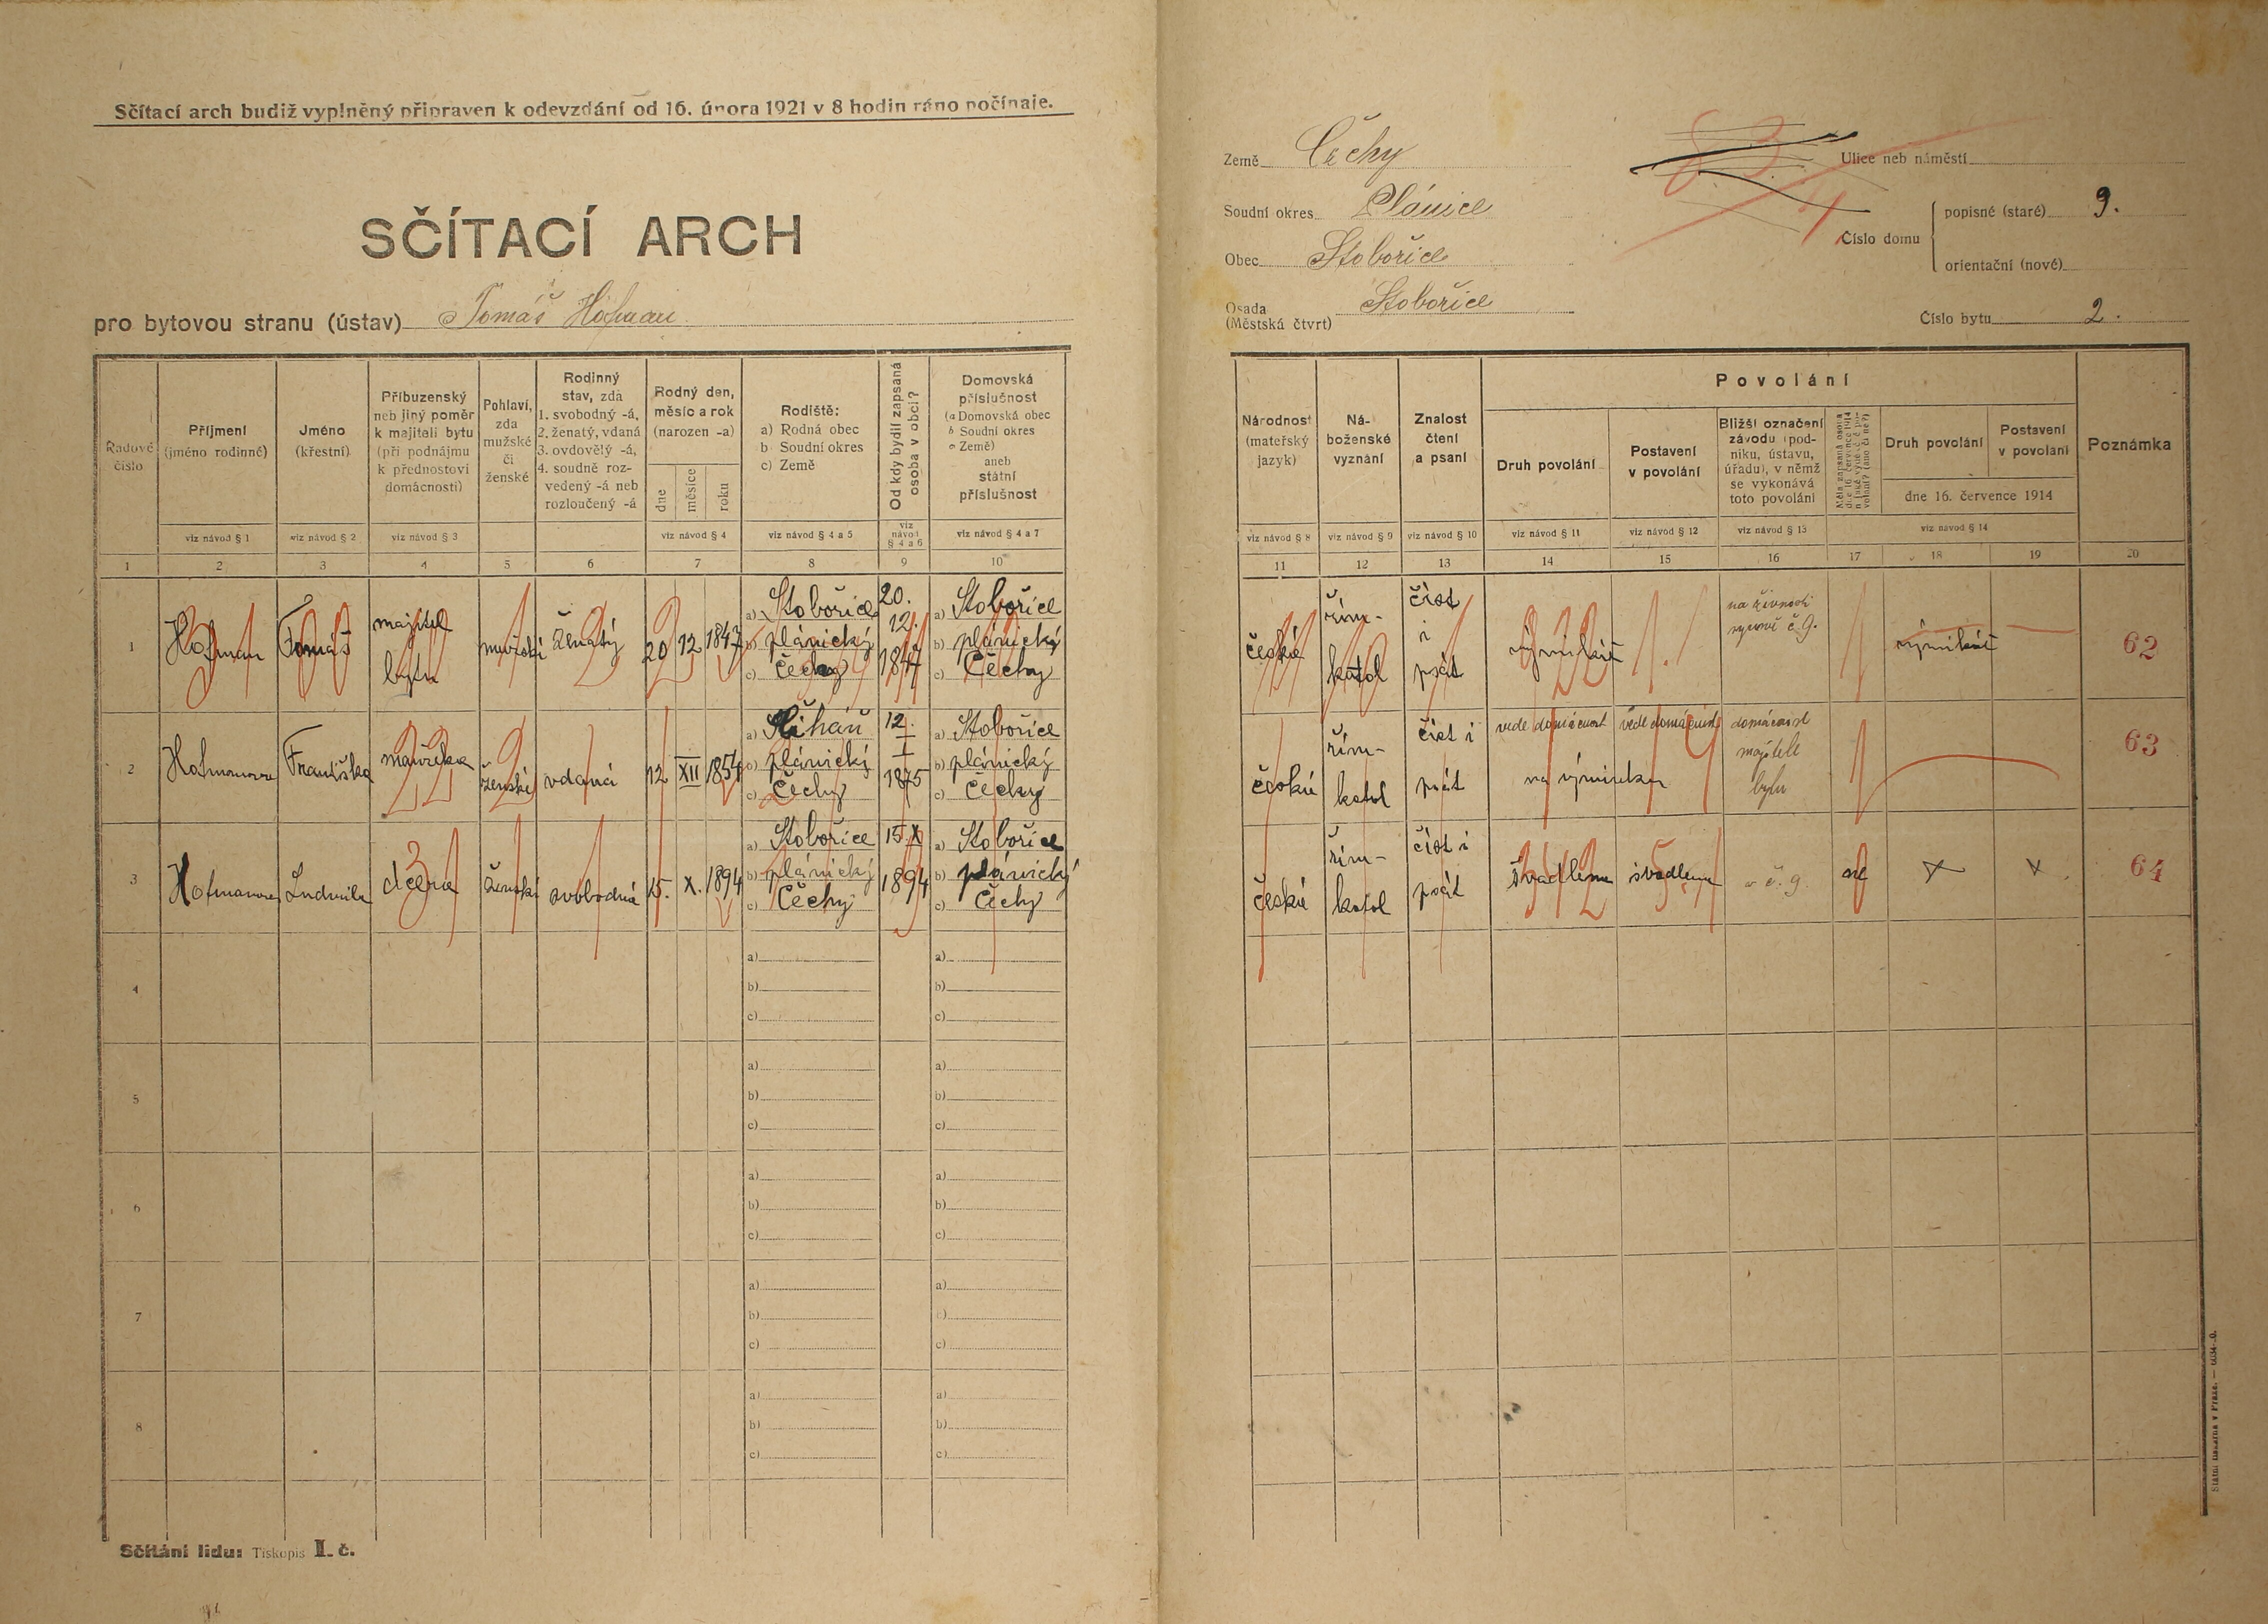 Sčítací arch budiž vyplněný připraven k odevzdání od 16. února 1921 v 8 hodin ráno počínaje.
SČÍTACÍ ARCH
pro bytovou stranu (ústav) Tomáš Hofman
Země Čechy
Soudní okres Plánice
Obec Stobořice
Osada (Městská čtvrt) Stobořice
Ulice neb náměstí
Číslo domu
popisné (staré) 9.
orientační (nové)
Číslo bytu 2.
Řadové číslo
Příjmení (jméno rodinné)
Jméno (křestní)
Příbuzenský neb jiný poměr k majiteli bytu (při podnájmu k přednostovi domácnosti)
Pohlaví, zda mužské či ženské
Rodinný stav, zda 1. svobodný -á, 2. ženatý, vdaná 3. ovdovělý -á, 4. soudně rozvedený -á neb rozloučený -á
Rodný den, měsíc a rok (narozen -a)
dne měsíce roku
Rodiště: a) Rodná obec b) Soudní okres c) Země
Od kdy bydlí zapsaná osoba v obci?
Domovská příslušnost (a Domovská obec b Soudní okres c Země) aneb státní příslušnost
Národnost (mateřský jazyk)
Náboženské vyznání
Znalost čtení a psaní
Povolání
Druh povolání
Postavení v povolání
Bližší označení závodu (podniku, ústavu, úřadu), v němž se vykonává toto povolání
Druh povolání
Postavení v povolání
dne 16. července 1914
Poznámka
viz návod § 1 viz návod § 2 viz návod § 3 viz návod § 4 viz návod § 4 a 5 viz návod § 4 a 6 viz návod § 4 a 7
viz návod § 8 viz návod § 9 viz návod § 10 viz návod § 11 viz návod § 12 viz návod § 13 viz návod § 14
1 2 3 4 5 6 7 8 9 10
11 12 13 14 15 16 17 18 19 20
1 Hofman Tomáš majitel bytu mužské ženatý 20 12 1847 a) Stobořice b) plánický c) Čechy 20. 12. 1847 a) Stobořice b) plánický c) Čechy
česká řím-katol číst i psát výminkář na živnosti č. 9. výminkář 62
2 Hofmanova Františka manželka ženské vdaná 12 XII 1854 a) b) plánický c) Čechy 12. I 1875 a) Stobořice b) plánický c) Čechy
česká řím-katol číst i psát vede domácnost na výminku vede domácnost domácnost majitele bytu 63
3 Hofmanova Ludmila dcera ženské svobodná 15. X. 1894 a) Stobořice b) plánický c) Čechy 15. X 1894 a) Stobořice b) plánický c) Čechy
česká řím-katol číst i psát švadlena švadlena v č. 9. ne 64
4 a) b) c) a) b) c)
5 a) b) c) a) b) c)
6 a) b) c) a) b) c)
7 a) b) c) a) b) c)
8 a) b) c) a) b) c)
Sčítání lidu: Tiskopis I. č.